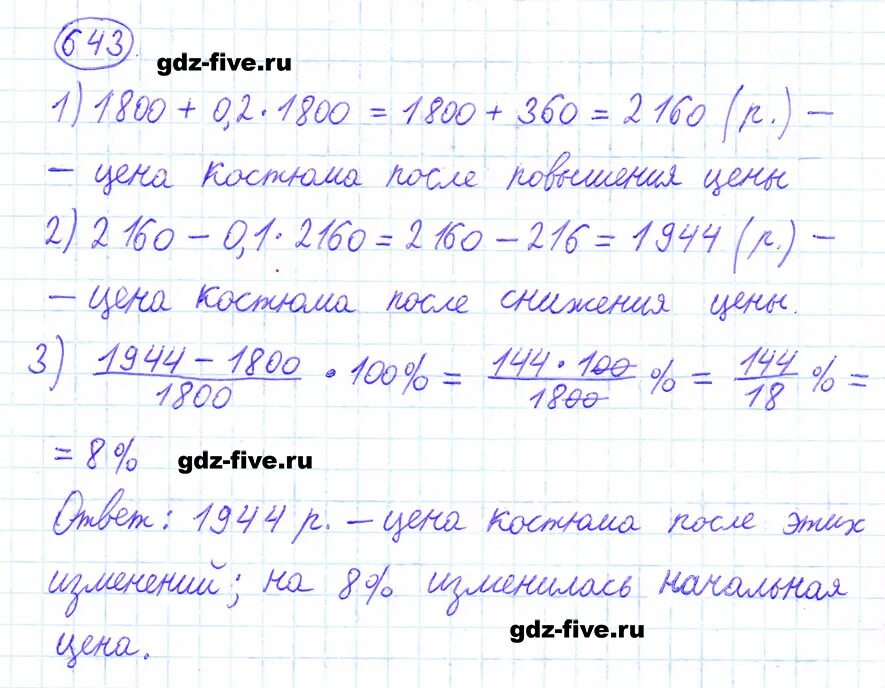 643
gdz-five.ru
1) 1800 + 0,2 · 1800 = 1800 + 360 = 2160 (р.) –
– цена костюма после повышения цены
2) 2160 – 0,1 · 2160 = 2160 – 216 = 1944 (р.) –
– цена костюма после снижения цены.
3) \frac{1944 – 1800}{1800} · 100% = \frac{144 · 100}{1800} % = \frac{144}{18} % =
= 8% gdz-five.ru
Ответ: 1944 р. – цена костюма после этих
изменений; на 8% изменилась начальная
цена.
gdz-five.ru